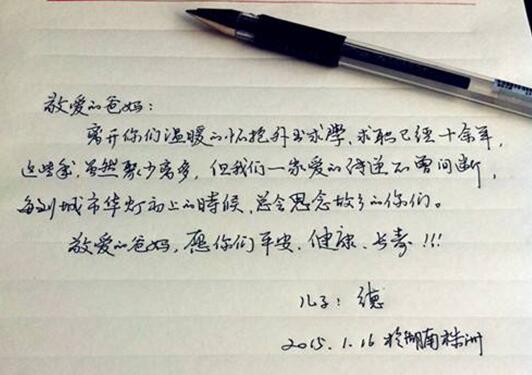 敬爱的爸妈：
离开你们温暖的怀抱外出求学、求职已经十余年，
这些年，虽然聚少离多，但我们一家爱的传递不曾间断，
每到城市华灯初上的時候，总会思念故乡的你们。
敬爱的爸妈，愿你们平安、健康、长寿!!!
儿子：德
2015.1.16 於湖南株洲